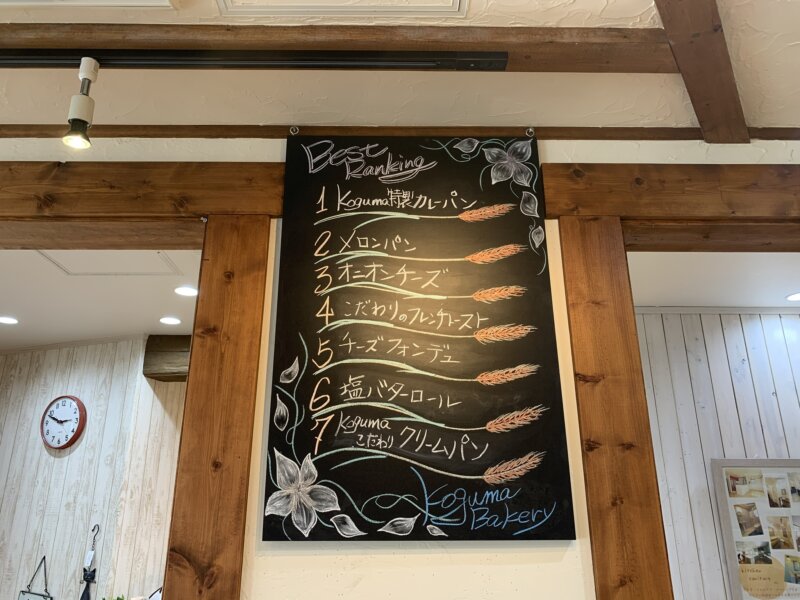 Best
Ranking
1 Koguma特製カレーパン
2 メロンパン
3 オニオンチーズ
4 こだわりのフレンチトースト
5 チーズフォンデュ
6 塩バターロール
7 Koguma
こだわり クリームパン
Koguma
Bakery
kitchen